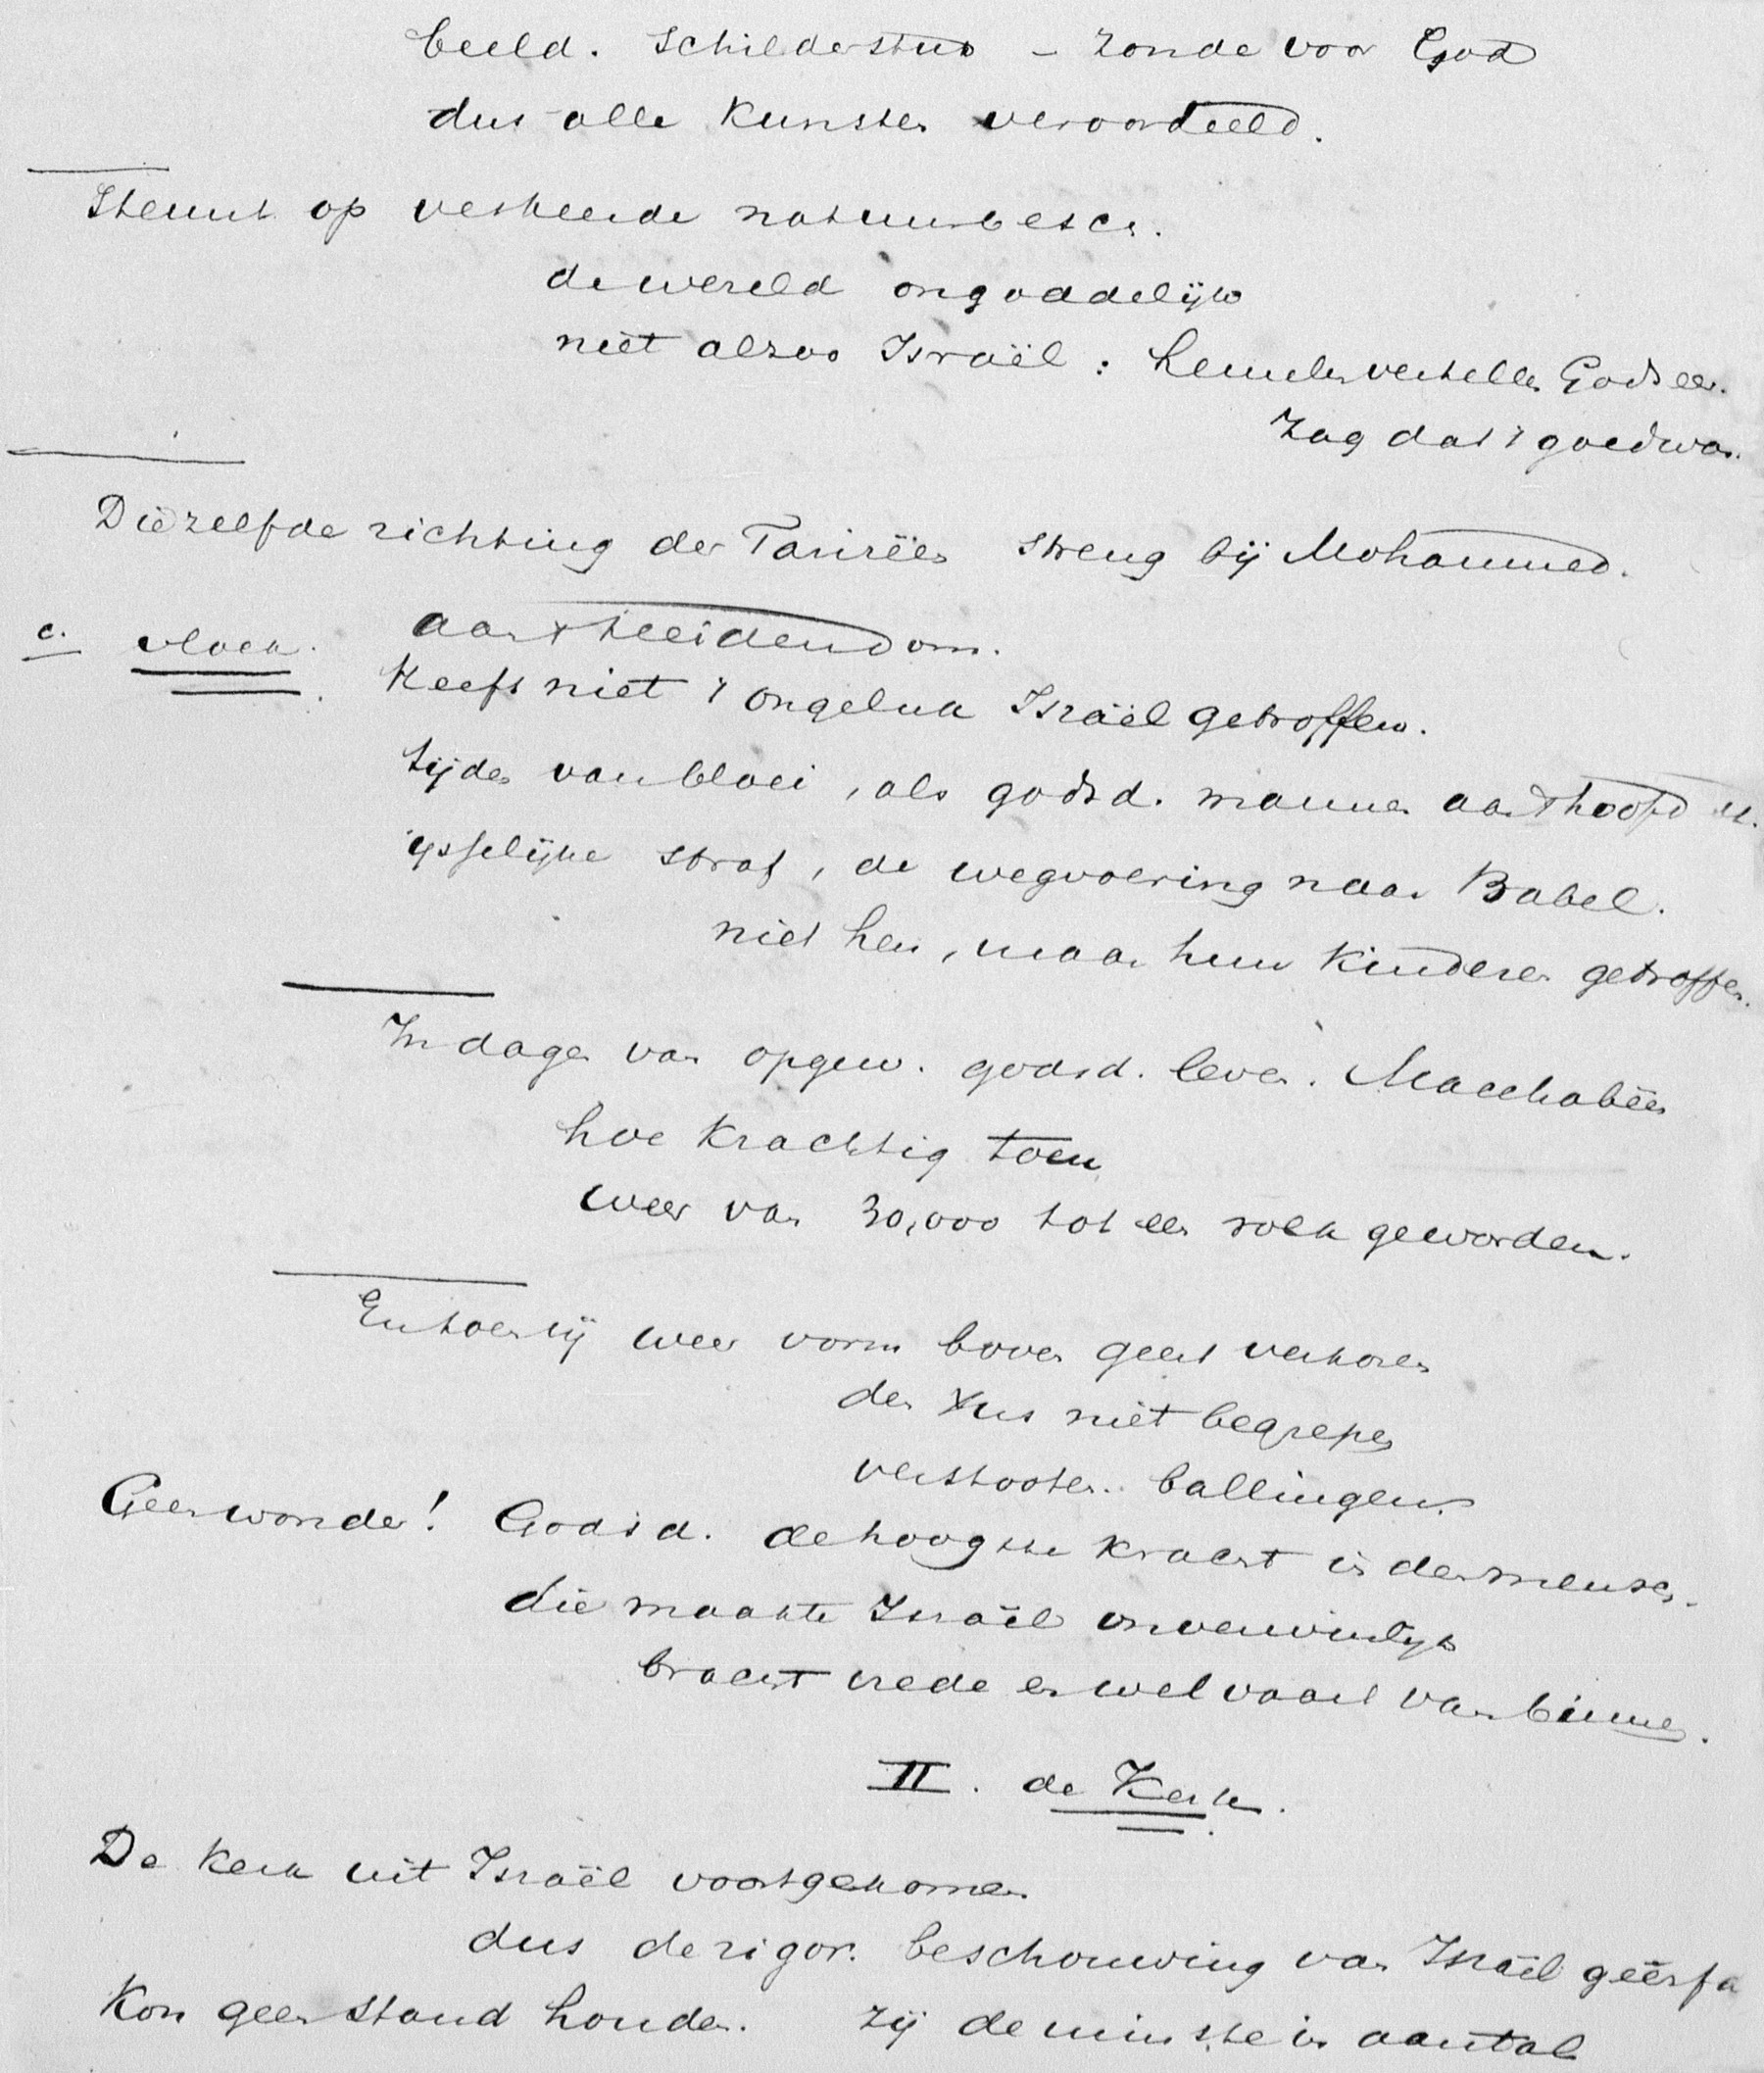 beeld. Schilderstuk - zonde voor God
dus alle Kunsten veroordeeld.
Steunt op verkeerde natuurbesch.
de wereld ongoddelijk
niet alzoo Israël : hemelen vertellen Gods eer.
Zag dat 't goed was.
Diezelfde richting der Farizëen streng bij Mohammed.
c. vloek. aan 't heidendom.
Heeft niet 't ongeluk Israël getroffen.
tijden van bloei, als godsd. mannen aan 't hoofd
ijsselijke straf, de wegvoering naar Babel.
niet hen, maar hun Kinderen getroffen.
In dagen van opgew. godsd. leven. Macchabëen
hoe Krachtig toen
weer van 30,000 tot een volk geworden.
En toen zij weer vorm boven geest verkozen
den Xus niet begrepen
verstooten. ballingen.
Geen wonder! Godsd. de hoogste Kracht in den mensch.
die maakte Israël onverwinlijk
bracht vrede en welvaart van binnen.
II. de Kerk.
De Kerk uit Israël voortgekomen
dus de rigor. beschouwing van Israël geërfd
Kon geen stand houden. Zij de minste in aantal